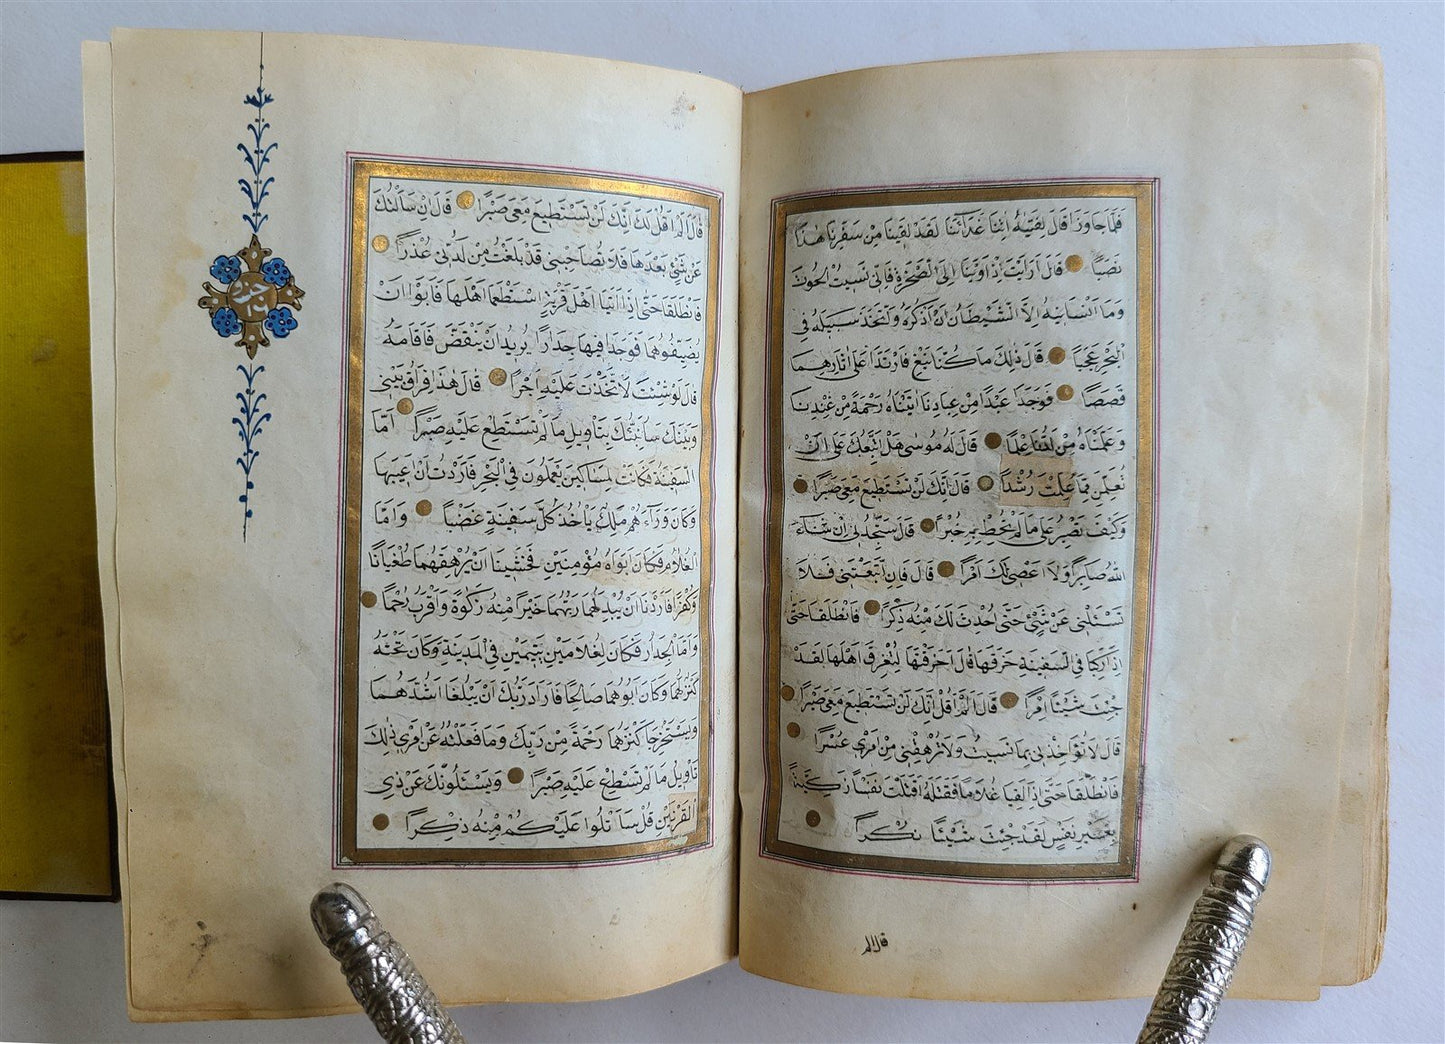 فَلَمَّا جَاوَزَا قَالَ لِفَتٰيهُ اٰتِنَا غَدَآءَنَا لَقَدْ لَقِينَا مِنْ سَفَرِنَا هٰذَا
نَصَبًا قَالَ اَرَاَيْتَ اِذْ اَوَيْنَا اِلَى الصَّخْرَةِ فَاِنِّى نَسِيتُ الْحُوتَ
وَمَا اَنْسَانِيهُ اِلَّا الشَّيْطَانُ اَنْ اَذْكُرَهُ وَاتَّخَذَ سَبِيلَهُ فِى
الْبَحْرِ عَجَبًا قَالَ ذٰلِكَ مَا كُنَّا نَبْغِ فَارْتَدَّا عَلٰى اٰثَارِهِمَا
قَصَصًا فَوَجَدَا عَبْدًا مِنْ عِبَادِنَا اٰتَيْنَاهُ رَحْمَةً مِنْ عِنْدِنَا
وَعَلَّمْنَاهُ مِنْ لَدُنَّا عِلْمًا قَالَ لَهُ مُوسٰى هَلْ اَتَّبِعُكَ عَلٰى اَنْ
تُعَلِّمَنِ مِمَّا عُلِّمْتَ رُشْدًا قَالَ اِنَّكَ لَنْ تَسْتَطِيعَ مَعِىَ صَبْرًا
وَكَيْفَ تَصْبِرُ عَلٰى مَا لَمْ تُحِطْ بِهِ خُبْرًا قَالَ سَتَجِدُنِى اِنْ شَاءَ
اللّٰهُ صَابِرًا وَلَا اَعْصِى لَكَ اَمْرًا قَالَ فَاِنِ اتَّبَعْتَنِى فَلَا
تَسْـَٔلْنِى عَنْ شَىْءٍ حَتّٰى اُحْدِثَ لَكَ مِنْهُ ذِكْرًا فَانْطَلَقَا حَتّٰى
اِذَا رَكِبَا فِى السَّفِينَةِ خَرَقَهَا قَالَ اَخَرَقْتَهَا لِتُغْرِقَ اَهْلَهَا لَقَدْ
جِئْتَ شَيْئًا اِمْرًا قَالَ اَلَمْ اَقُلْ اِنَّكَ لَنْ تَسْتَطِيعَ مَعِىَ صَبْرًا
قَالَ لَا تُؤَاخِذْنِى بِمَا نَسِيتُ وَلَا تُرْهِقْنِى مِنْ اَمْرِى عُسْرًا
فَانْطَلَقَا حَتّٰى اِذَا لَقِيَا غُلَامًا فَقَتَلَهُ قَالَ اَقَتَلْتَ نَفْسًا زَكِيَّةً
بِغَيْرِ نَفْسٍ لَقَدْ جِئْتَ شَيْئًا نُكْرًا
قال الم
قَالَ اَلَمْ اَقُلْ لَكَ اِنَّكَ لَنْ تَسْتَطِيعَ مَعِىَ صَبْرًا قَالَ اِنْ سَاَلْتُكَ
عَنْ شَىْءٍ بَعْدَهَا فَلَا تُصَاحِبْنِى قَدْ بَلَغْتَ مِنْ لَدُنِّى عُذْرًا
فَانْطَلَقَا حَتّٰى اِذَا اَتَيَا اَهْلَ قَرْيَةٍ اسْتَطْعَمَا اَهْلَهَا فَاَبَوْا اَنْ
يُضَيِّفُوهُمَا فَوَجَدَا فِيهَا جِدَارًا يُرِيدُ اَنْ يَنْقَضَّ فَاَقَامَهُ
قَالَ لَوْ شِئْتَ لَاتَّخَذْتَ عَلَيْهِ اَجْرًا قَالَ هٰذَا فِرَاقُ بَيْنِى
وَبَيْنِكَ سَاُنَبِّئُكَ بِتَاْوِيلِ مَا لَمْ تَسْتَطِعْ عَلَيْهِ صَبْرًا اَمَّا
السَّفِينَةُ فَكَانَتْ لِمَسَاكِينَ يَعْمَلُونَ فِى الْبَحْرِ فَاَرَدْتُ اَنْ اَعِيبَهَا
وَكَانَ وَرَاءَهُمْ مَلِكٌ يَاْخُذُ كُلَّ سَفِينَةٍ غَصْبًا وَاَمَّا
الْغُلَامُ فَكَانَ اَبَوَاهُ مُؤْمِنَيْنِ فَخَشِينَا اَنْ يُرْهِقَهُمَا طُغْيَانًا
وَكُفْرًا فَاَرَدْنَا اَنْ يُبْدِلَهُمَا رَبُّهُمَا خَيْرًا مِنْهُ زَكٰوةً وَاَقْرَبَ رُحْمًا
وَاَمَّا الْجِدَارُ فَكَانَ لِغُلَامَيْنِ يَتِيمَيْنِ فِى الْمَدِينَةِ وَكَانَ تَحْتَهُ
كَنْزٌ لَهُمَا وَكَانَ اَبُوهُمَا صَالِحًا فَاَرَادَ رَبُّكَ اَنْ يَبْلُغَا اَشُدَّهُمَا
وَيَسْتَخْرِجَا كَنْزَهُمَا رَحْمَةً مِنْ رَبِّكَ وَمَا فَعَلْتُهُ عَنْ اَمْرِى ذٰلِكَ
تَاْوِيلُ مَا لَمْ تَسْطِعْ عَلَيْهِ صَبْرًا وَيَسْـَٔلُونَكَ عَنْ ذِى
الْقَرْنَيْنِ قُلْ سَاَتْلُوا عَلَيْكُمْ مِنْهُ ذِكْرًا
جزء
١٦